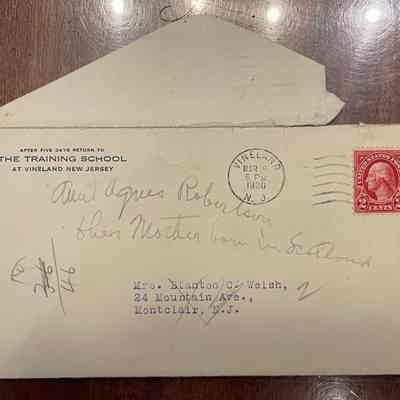 AFTER FIVE DAYS RETURN TO
THE TRAINING SCHOOL
AT VINELAND NEW JERSEY
VINELAND
MAR
5 PM
N. J.
UNITED STATES POSTAGE
2 CENTS 2
Aunt Agnes Robertson
Mother born in Scotland
Mrs. Blanton C. Welsh,
24 Mountain Ave.,
Montclair, N.J.
2